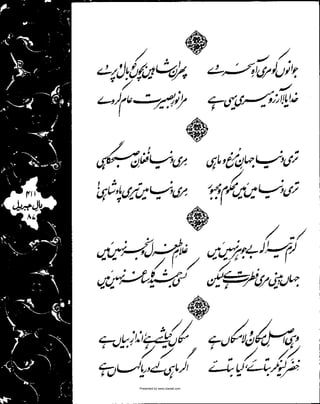 جوانوں کو مری آہِ سحر دے
پھر ان شاہیں بچوں کو بال و پر دے
خدایا! آرزو میری یہی ہے
مرا نورِ بصیرت عام کر دے
تری دنیا جہانِ مرغ و ماہی
مری دنیا فغانِ صبحگاہی
تری دنیا میں میں محکوم و مجبور
مری دنیا میں تیری پادشاہی!
کرم تیرا کہ بے جوہر نہیں میں
غلامِ طغرل و سنجر نہیں میں
جہاں بینی مری فطرت ہے لیکن
کسی جمشید کا ساغر نہیں میں
وہی اصلِ مکان و لامکاں ہے
مکاں کیا شے ہے؟ اندازِ بیاں ہے
خضر کیونکر بتائے، کیا بتائے
اگر ماہی کہے دریا کہاں ہے
بالِ جبریل
Presented by www.ziaraat.com